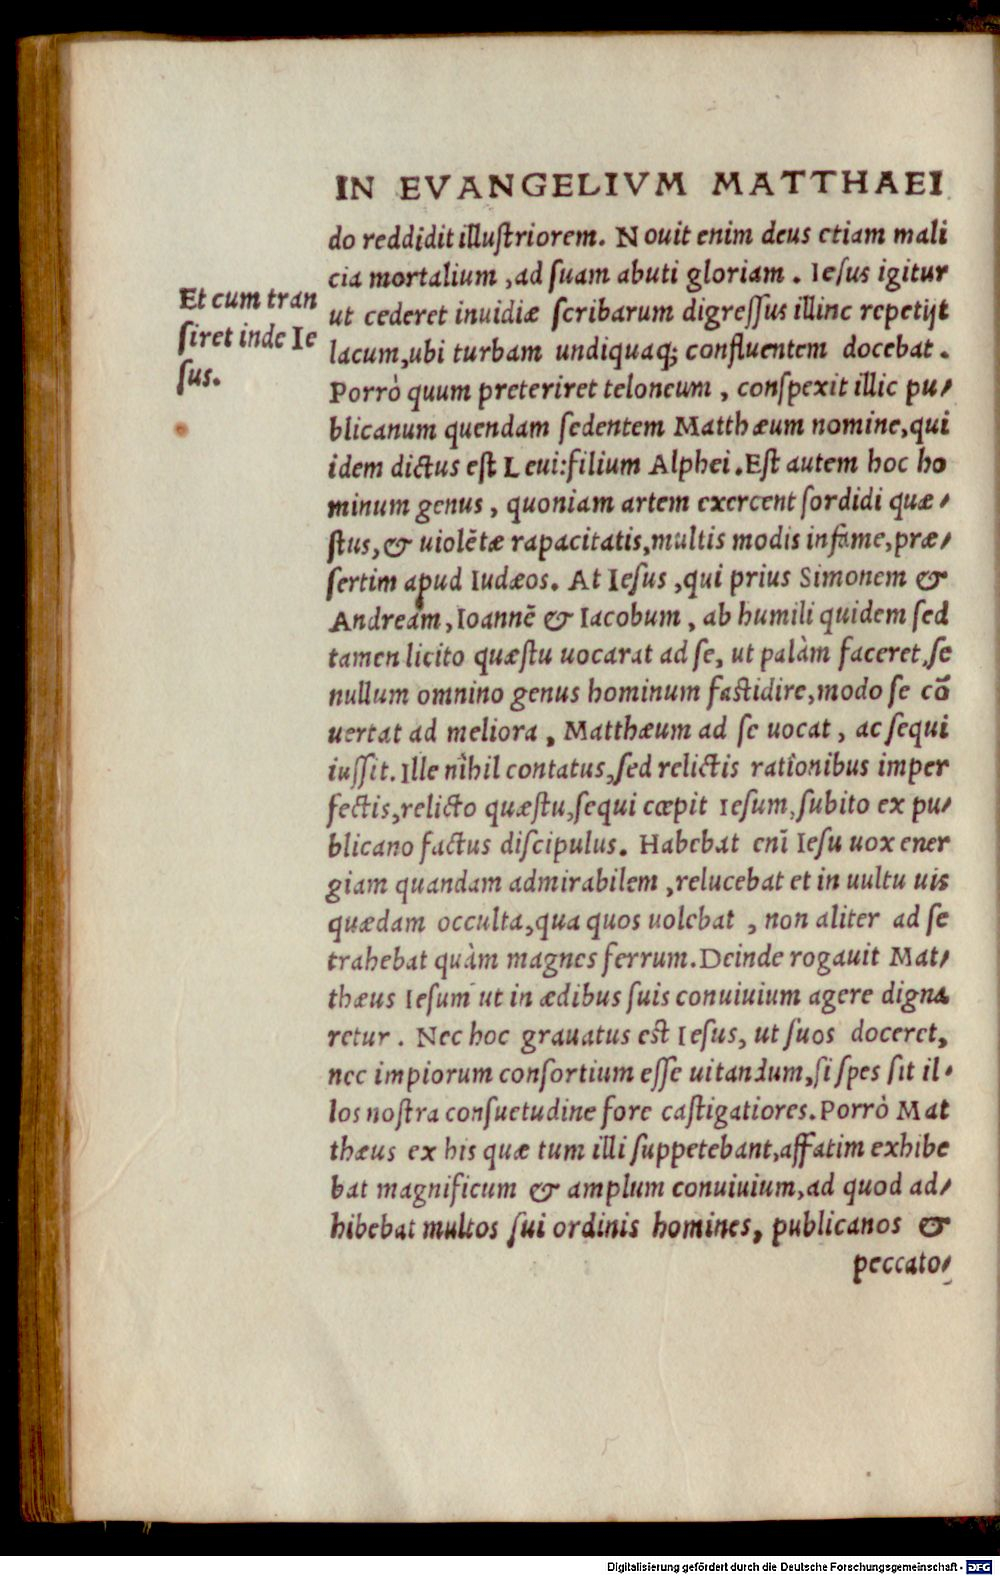 IN EVANGELIVM MATTHAEI
do reddidit illuſtriorem. Nouit enim deus etiam mali
cia mortalium, ad ſuam abuti gloriam. Ieſus igitur
Et cum tran
ſiret inde Ie
ſus.
ut cederet inuidiæ ſcribarum digreſſus illinc repetijt
lacum, ubi turbam undiquaq; confluentem docebat.
Porrò quum preteriret teloneum, conſpexit illic pu⸗
blicanum quendam ſedentem Matthæum nomine, qui
idem dictus eſt Leui: filium Alphei. Eſt autem hoc ho
minum genus, quoniam artem exercent ſordidi quæ⸗
ſtus, & uiolētæ rapacitatis, multis modis infame, præ⸗
ſertim apud Iudæos. At Ieſus, qui prius Simonem &
Andream, Ioannē & Iacobum, ab humili quidem ſed
tamen licito quæſtu uocarat ad ſe, ut palàm faceret, ſe
nullum omnino genus hominum faſtidire, modo ſe cō
uertat ad meliora, Matthæum ad ſe uocat, ac ſequi
iuſſit. Ille nihil contatus, ſed relictis rationibus imper
fectis, relicto quæſtu, ſequi cœpit Ieſum, ſubito ex pu⸗
blicano factus diſcipulus. Habebat enī Ieſu uox ener
giam quandam admirabilem, relucebat et in uultu uis
quædam occulta, qua quos uolebat, non aliter ad ſe
trahebat quàm magnes ferrum. Deinde rogauit Mat⸗
thæus Ieſum ut in ædibus ſuis conuiuium agere digna
retur. Nec hoc grauatus est Ieſus, ut ſuos doceret,
nec impiorum conſortium eſſe uitandum, ſi ſpes ſit il⸗
los noſtra conſuetudine fore caſtigatiores. Porrò Mat
thæus ex his quæ tum illi ſuppetebant, affatim exhibe
bat magnificum & amplum conuiuium, ad quod ad⸗
hibebat multos ſui ordinis homines, publicanos &
peccato⸗
Digitalisierung gefördert durch die Deutsche Forschungsgemeinschaft - DFG